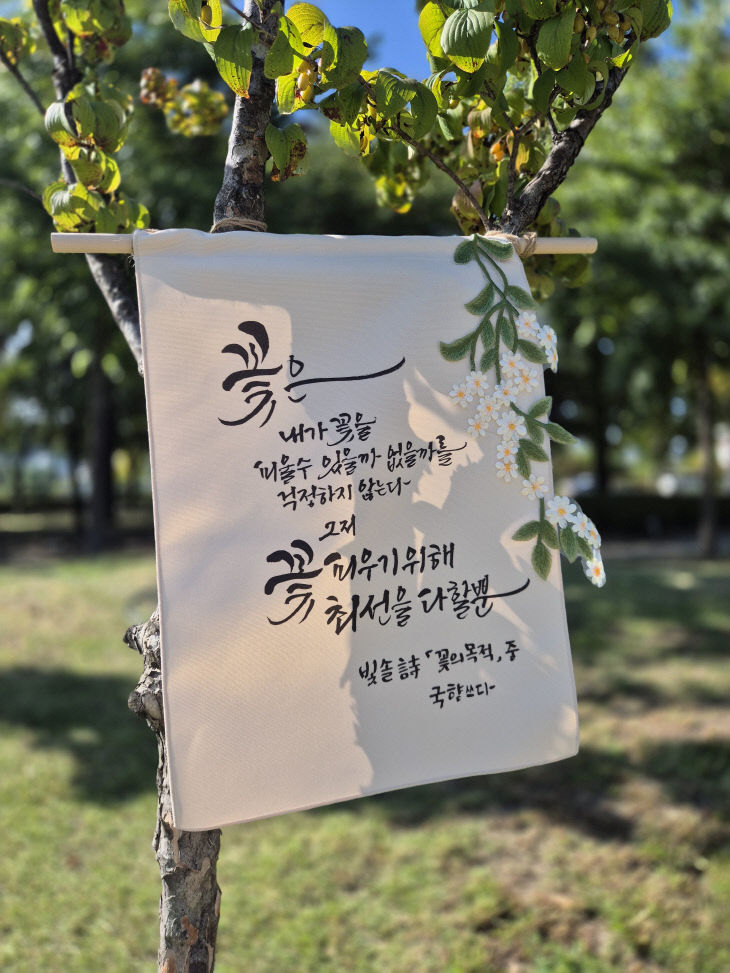 꽃은
내가 꽃을
피울수 있을까 없을까를
걱정하지 않는다~
그저
꽃 피우기위해
최선을 다할뿐
빛솔 詩 「꽃의목적」중
국향쓰다~